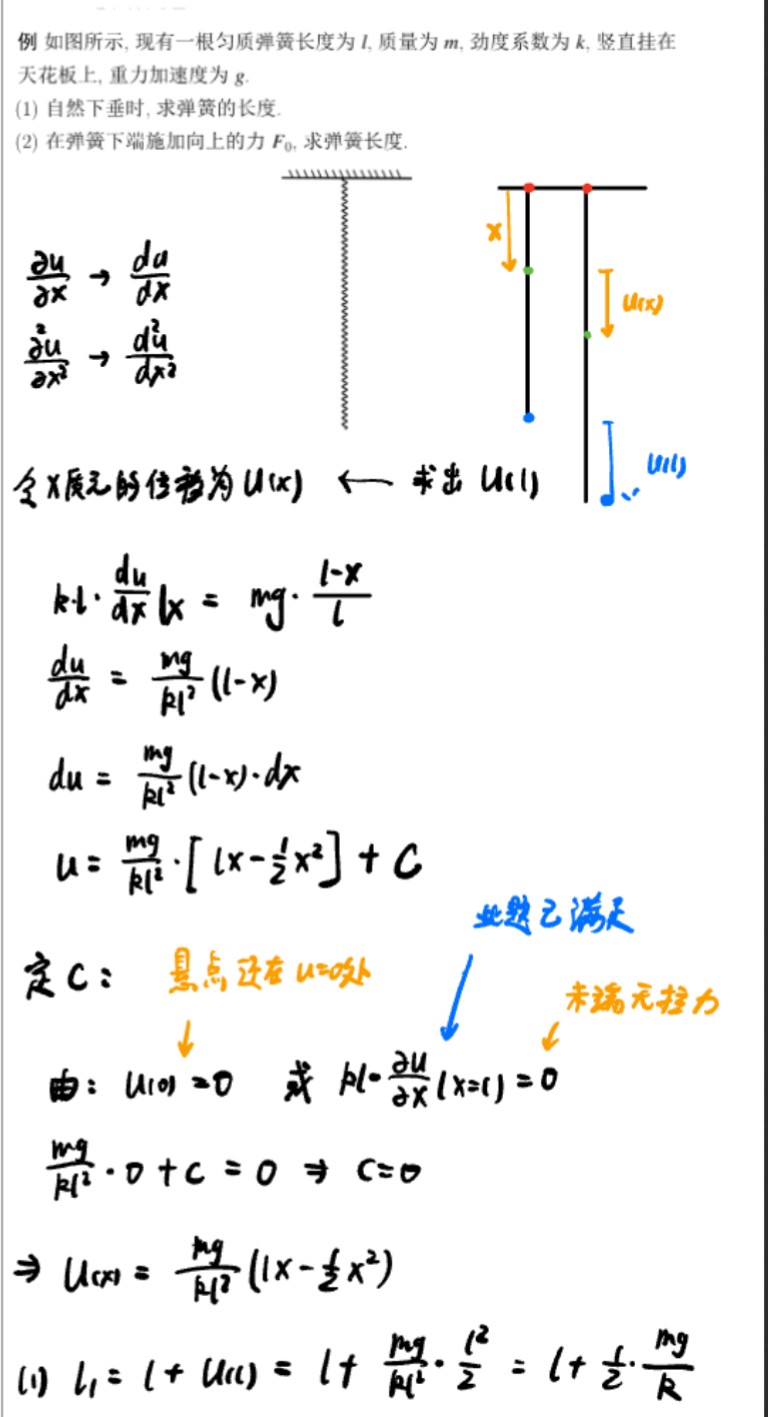 例 如图所示, 现有一根匀质弹簧长度为 l, 质量为 m, 劲度系数为 k, 竖直挂在
天花板上, 重力加速度为 g.
(1) 自然下垂时, 求弹簧的长度.
(2) 在弹簧下端施加向上的力 F₀, 求弹簧长度.
∂u/∂x → du/dx
∂²u/∂x² → d²u/dx²
x
u(x)
u(l)
令x质元的位移为u(x) ← 求出 u(l)
k·l·du/dx|x = mg·(l-x)/l
du/dx = mg/kl² (l-x)
du = mg/kl² (l-x)·dx
u = mg/kl²·[lx-½x²] + C
此题已满足
定C: 悬点还在u=0处
末端无拉力
由: u(0)=0 或 kl·∂u/∂x(x=l)=0
mg/kl²·0+C=0 ⇒ C=0
⇒ u(x) = mg/kl² (lx-½x²)
(1) l₁ = l+u(l) = l+mg/kl²·l²/2 = l+½·mg/k